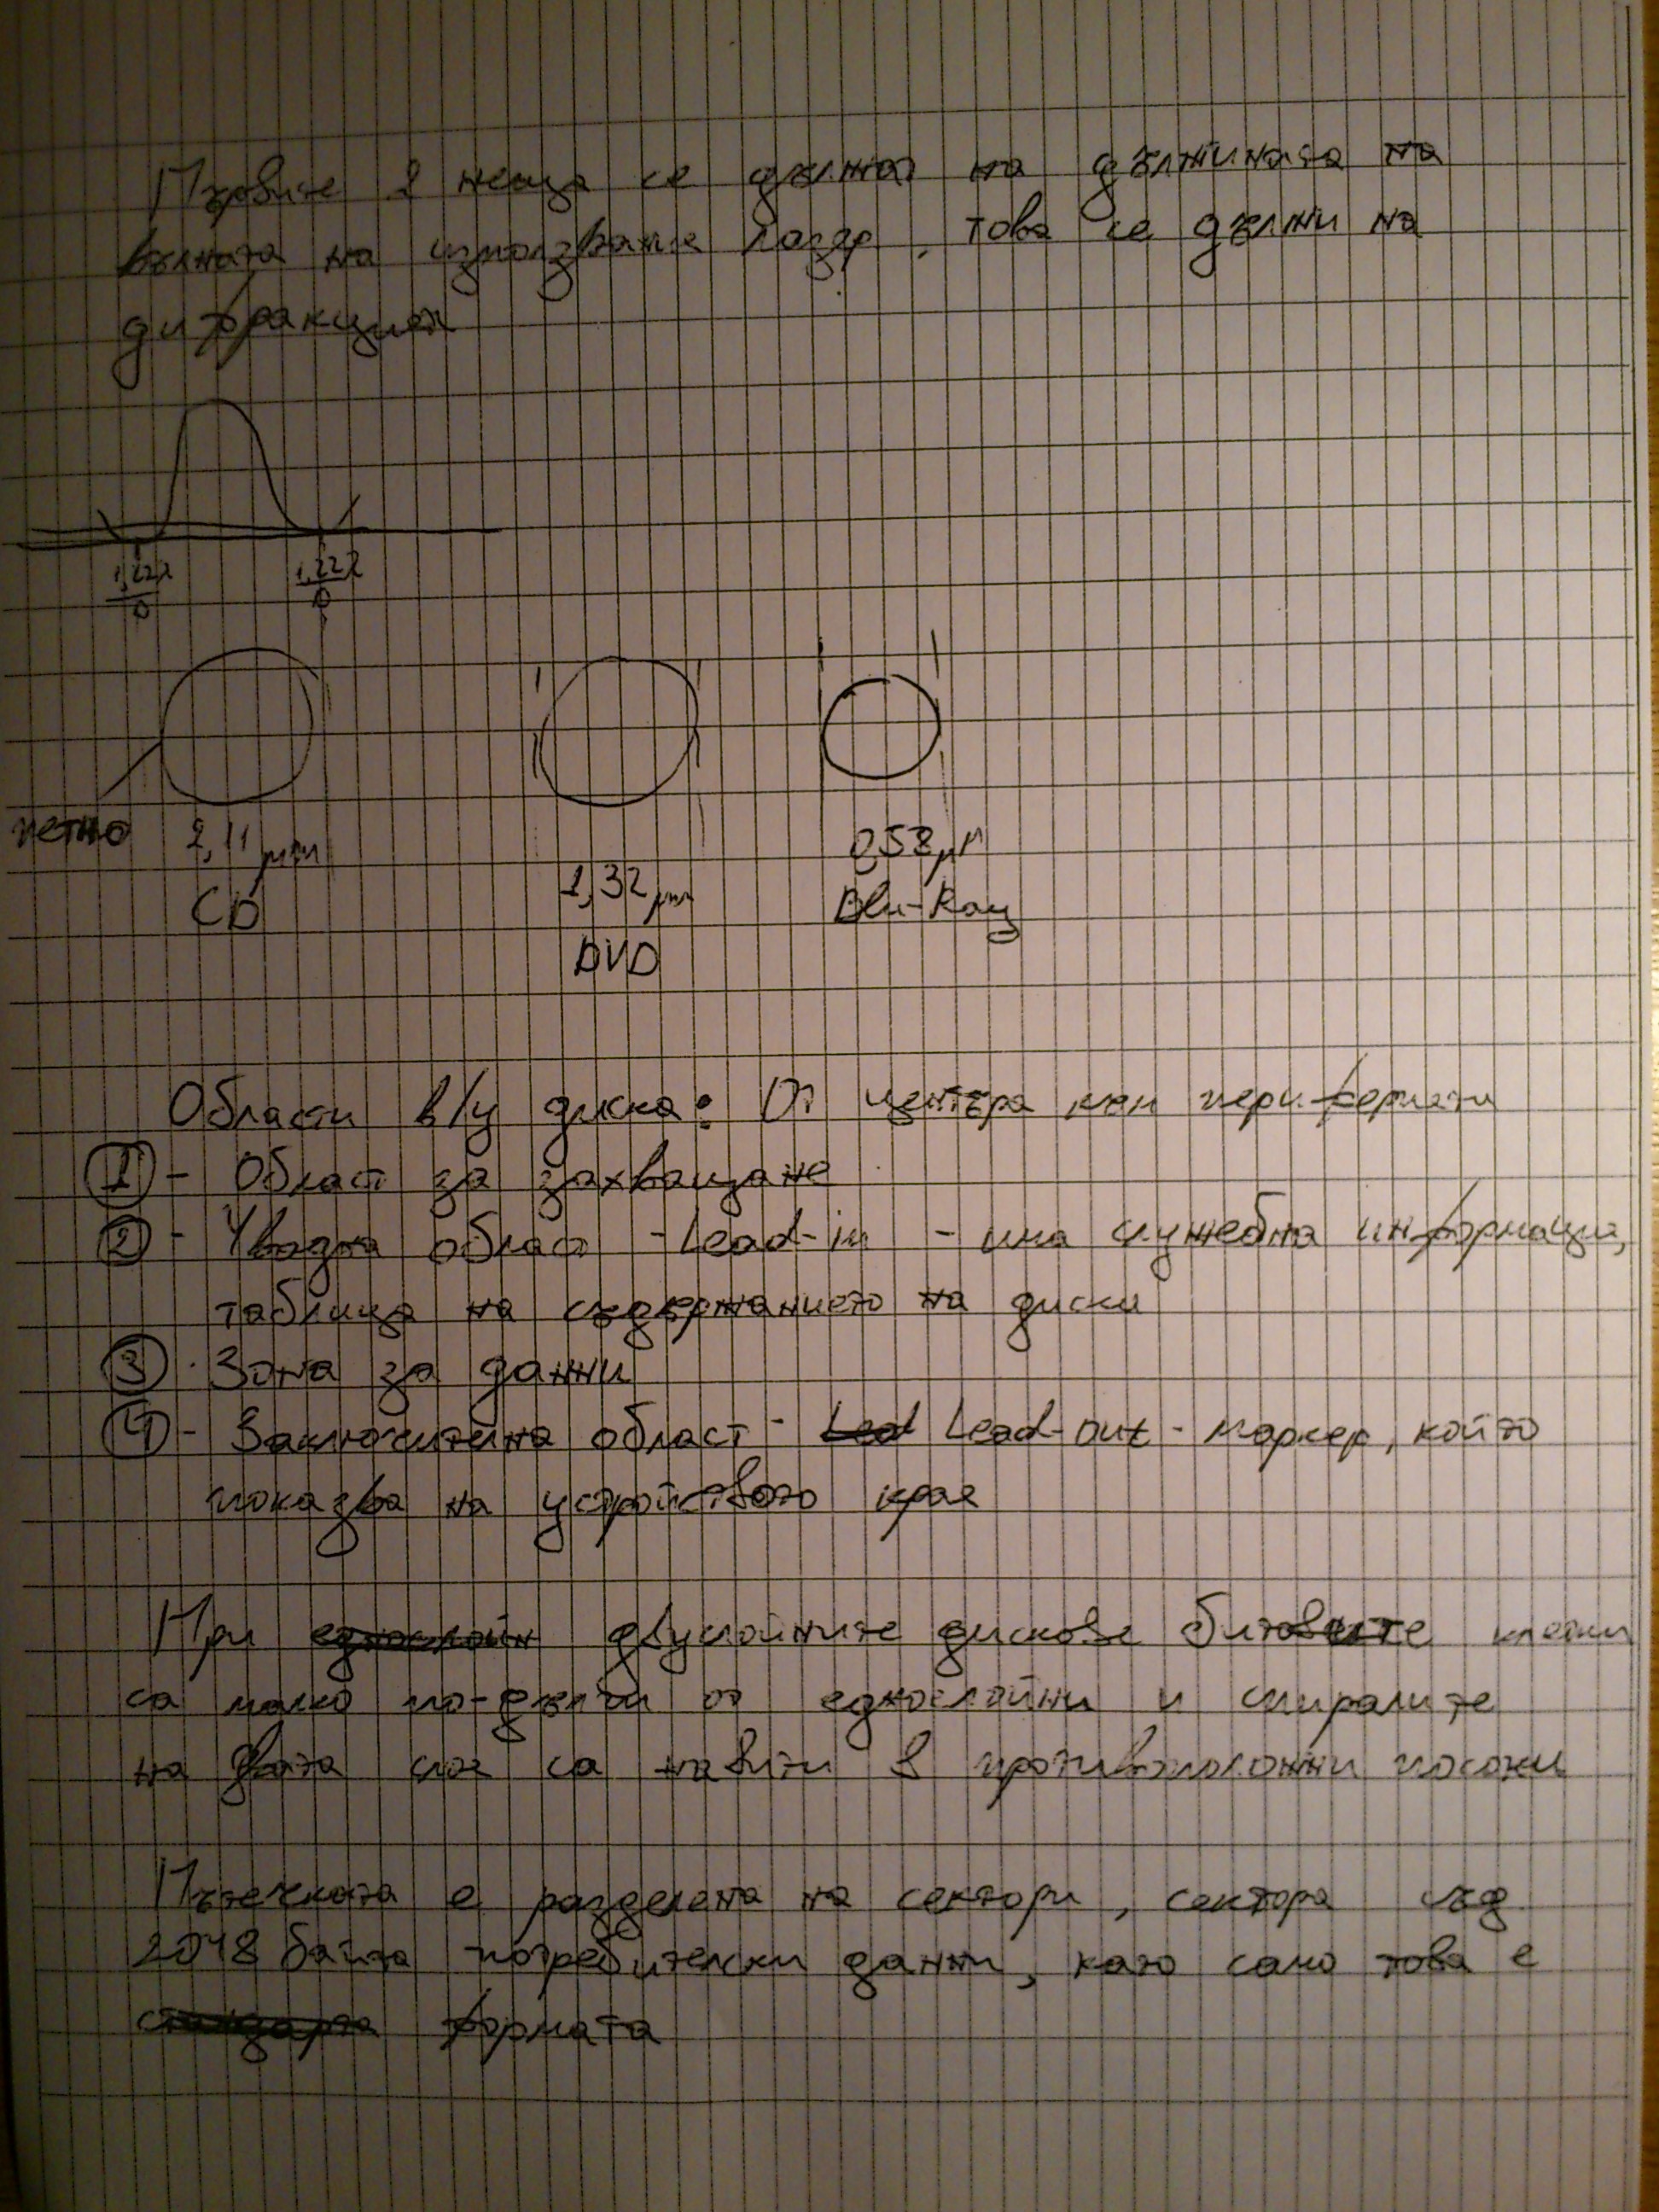 Първите 2 неща се дължат на дължината на
вълната на използвания лазер, това се дължи на
дифракция
1,22λ
D
1,22λ
D
петно
2,11 μm
CD
1,32 μm
DVD
0,58 μm
Blu-Ray
Области в/у диска: От центъра към периферията
1 - Област за захващане
2 - Уводна област - Lead-in - има служебна информация,
таблица на съдържанието на диска
3 - Зона за данни
4 - Заключителна област - Led Lead-out - маркер, който
показва на устройството края
При еднослойн двуслойните дискове битовите клетки
са малко по-дълги от еднослойни и спиралите
на двата слоя са навити в противоположни посоки
Пътечката е разделена на сектори, сектора съд
2048 байта потребителски данни, като само това е
стандарта формата